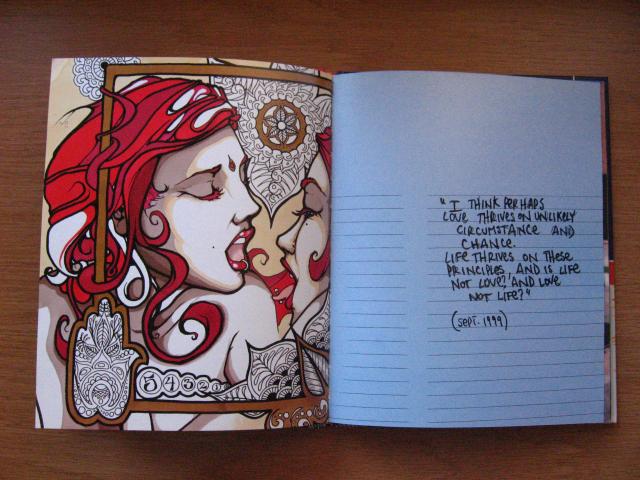 5 4 3 2
"I THINK PERHAPS
LOVE THRIVES ON UNLIKELY
CIRCUMSTANCE AND
CHANCE.
LIFE THRIVES ON THESE
PRINCIPLES, AND IS LIFE
NOT LOVE, AND LOVE
NOT LIFE?"
(SEPT. 1999)